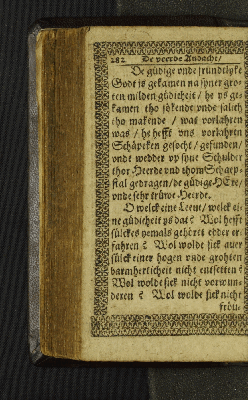 282 De veerde Andacht/
De güdige vnde fründtlyke
Godt ys gekamen na syner gro-
ten milden güdicheit/ he ys ge-
kamen tho sökende vnde salich
tho makende / was vorlahren
was / he hefft vns vorlahren
Schäpeken gesocht / gefunden/
vnde wedder vp syne Schulder
thor Heerde vnd thom Schaep-
stal gedragen/ de güdige HEre/
vnde sehr trüwe Heirde.
O welck eine Leeue/ welck ei-
ne güdicheit ys dat? Wol hefft
sülckes yemals gehöret edder er-
fahren? Wol wolde sick auer
sülck einer hogen vnde groten
barmherticheit nicht entsetten?
Wol wolde sick nicht vorwun-
deren? Wol wolde sick nicht
fröu-